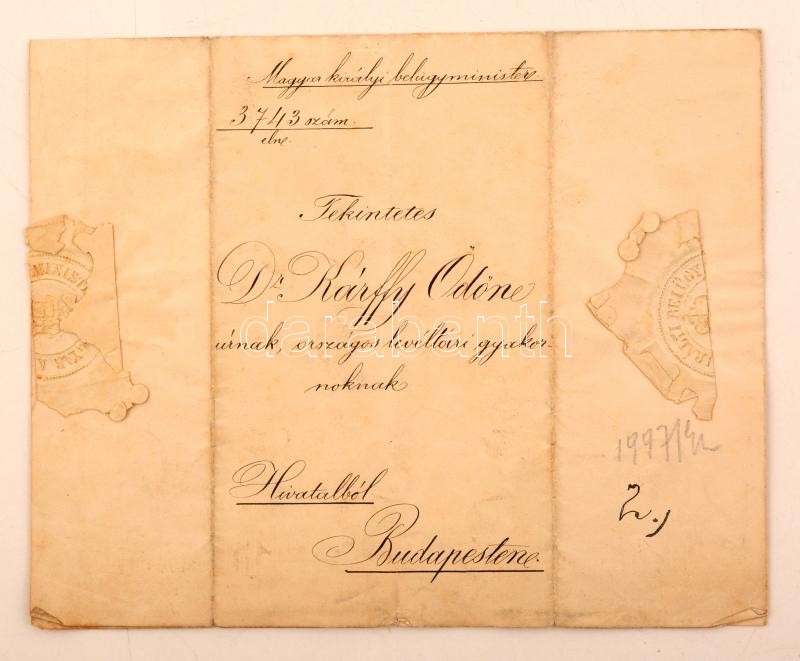 Magyar királyi belügyminister
3743 szám.
eln.
Tekintetes
Dr. Kárffy Ödön
úrnak, országos levéltári gyakor-
noknak
Hivatalból
Budapesten.
2.)
darabanth